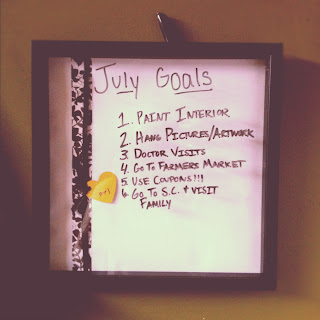 July Goals
1. Paint Interior
2. Hang Pictures/Artwork
3. Doctor Visits
4. Go To Farmers Market
5. Use Coupons!!!
6. Go To S.C. + Visit
Family